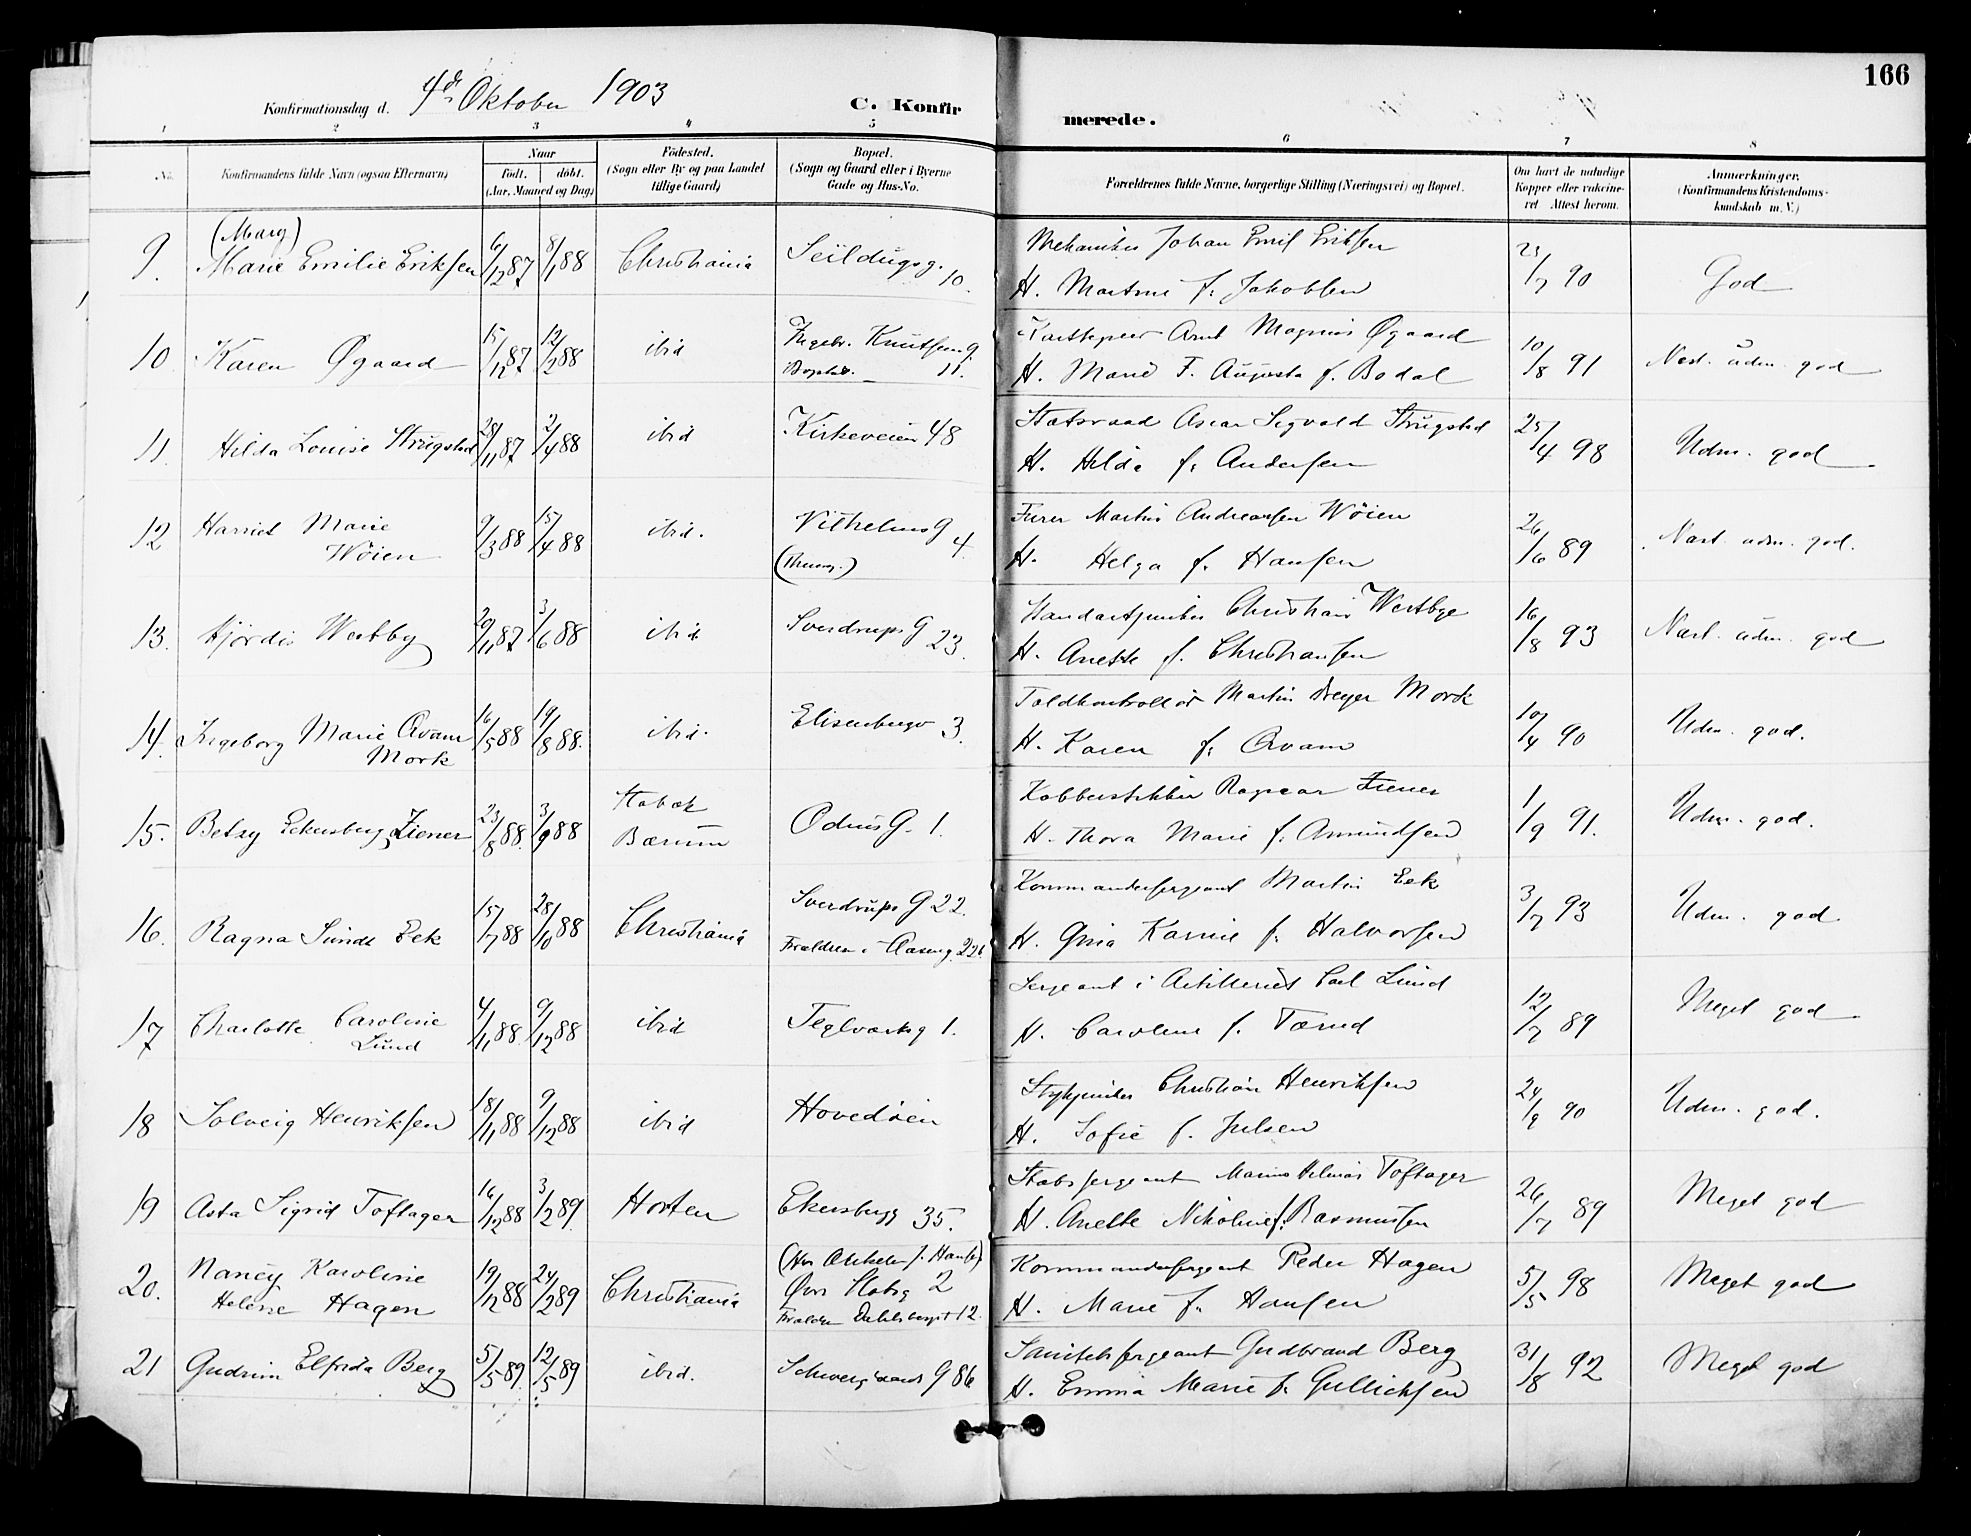 166
Konfirmationsdag d. 4de Oktober 1903
C. Konfirmerede.
1 2 3 4 5 6 7 8
No. Konfirmandens fulde Navn (ogsaa Efternavn)
Naar
födt. döbt.
(Aar, Maaned og Dag)
Födested.
(Sogn eller By og paa Landet
tillige Gaard)
Bopæl.
(Sogn og Gaard eller i Byerne
Gade og Hus-No.
Forældrenes fulde Navne, borgerlige Stilling (Næringsvei) og Bopæl.
Om havt de naturlige
Kopper eller vakcine-
ret Attest herom.
Anmærkninger.
(Konfirmandens Kristendoms-
kundskab m. V.)
(Marg)
9. Marie Emilie Eriksen 6/12 87 8/1 88 Christiania Seildugsg. 10.
Mekaniker Johan Emil Eriksen
H. Martine f. Jakobsen 23/7 90 God
10 Karen Øgaard 15/12 87 12/2 88 ibid Ingebr. Knutsens g. 11.
Arnt Magnus Øgaard
H. Marie F. Augusta f. Bodal 10/8 91 Næst. udm. god
11. Hilda Louise Strugstad 28/11 87 2/4 88 ibid Kirkeveien 48
Statsraad Oscar Sigvald Strugstad
H. Hilda f. Andersen 25/4 98 Udm. god
12 Harriet Marie
Wöien 9/3 88 15/4 88 ibid. Vilhelmsg 4.
Furer Martin Andreassen Wöien
H. Helga f. Hansen 26/6 89 Næst. udm. god.
13. Hjördis Westby 20/11 87 3/6 88 ibid Sverdrups G 23.
Standartjunker Christian Westbye
H. Anette f. Christiansen 16/8 93 Næst. udm. god
14. Ingeborg Marie Qvam
Mork 16/5 88 19/8 88. ibid. Elisenbergv 3.
Toldkontrollör Martin Dreyer Mork
H. Karen f. Qvam 10/4 90 Udm. god.
15. Betzy Eckersberg Ziener 23/8 88. 3/9 88 Stabæk
Bærum Odins G. 1.
Kobberstikker Ragnvar Ziener
H. Thora Marie f. Amundsen 1/9 91. Udm. god.
16. Ragna Sunde Eek 15/7 88 28/10 88 Christiania Sverdrups G 22.
Forældre i Aaseng. 22b
Kommandersergeant Martin Eek
H. Gina Karine f. Halvorsen 3/7 93 Udm. god
17 Charlotte Caroline
Lund 4/11 88. 9/12 88 ibid Teglverksg 1.
Sergeant i Artilleriet Carl Lund
H. Caroline f. Tærud 12/7 89 Meget god
18 Solveig Henriksen 18/11 88 9/12 88 ibid Hovedöien
Stykjunker Christian Henriksen
H. Sofie f. Julsen 24/9 90 Udm. god.
19 Asta Sigrid Toftager 16/12 88 3/2 89. Horten Ekersbergg 35.
Stabssergeant Marius Hilmar Toftager
H. Anette Nikoline f. Rasmussen 26/7 89 Meget god
20. Nancy Karoline
Helene Hagen 19/12 88 24/2 89 Christiania
Övre Slotsg 2
Forældre 12.
Kommandersergeant Peder Hagen
H. Marie f. Hansen 5/5 98 Meget god
21 Gudrun Elfrida Berg 5/5 89. 12/5 89 ibid. Schweigaards G 86
Sanitetssergeant Gudbrand Berg
H. Emma Marie f. Gullichsen 31/8 92 Meget god